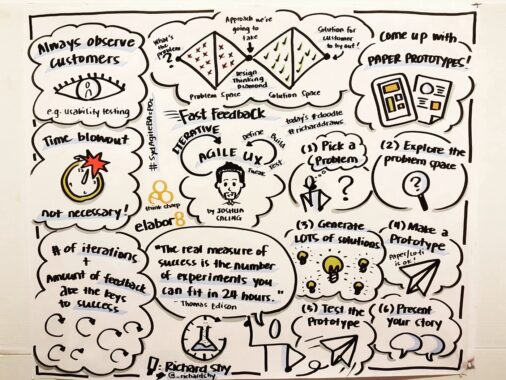 Always observe
customers
e.g. usability testing
What's
the
problem?
Approach we're
going to
take
Solution for
customer
to try out!
Design
Thinking
Diamond
Problem Space
Solution Space
Come up with
PAPER PROTOTYPES!
Time blowout
not necessary!
Fast feedback
ITERATIVE
AGILE UX
Define
Build
Test
Tweak
by JOSHUA
SALING
today's #doodle
#richarddraws
think sharp
elabor8
(1) Pick a
Problem
?
(2) Explore the
problem space
?
# of iterations
+
Amount of feedback
are the keys
to success
"The real measure of
success is the number
of experiments you
can fit in 24 hours."
- Thomas Edison
(3) Generate
LOTS of solutions
(4) Make a
Prototype
Paper/Lo-fi
is ok!
(5) Test the
Prototype
(6) Present
your story
: Richard Shy
@_richardshy